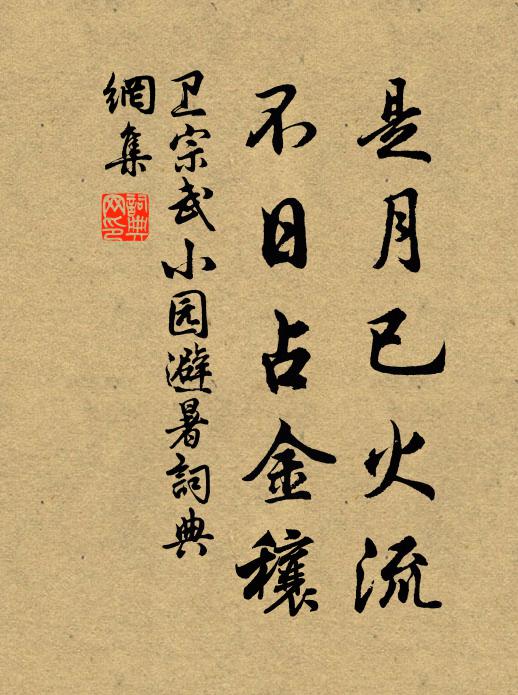 是月已火流
不日占金穰
卫宗武小园避暑詞典
網集
詞典
网印